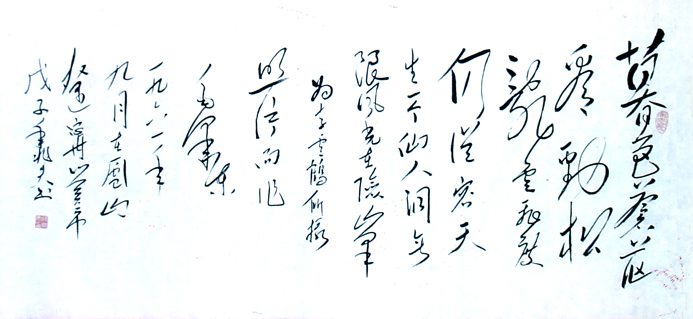 暮色蒼茫
看勁松
亂雲飛渡
仍從容天
生一个仙人洞無
限風光在險峰
為李雲鶴所攝
照片而作
毛澤東
一九六一年
九月在廬山
戊子